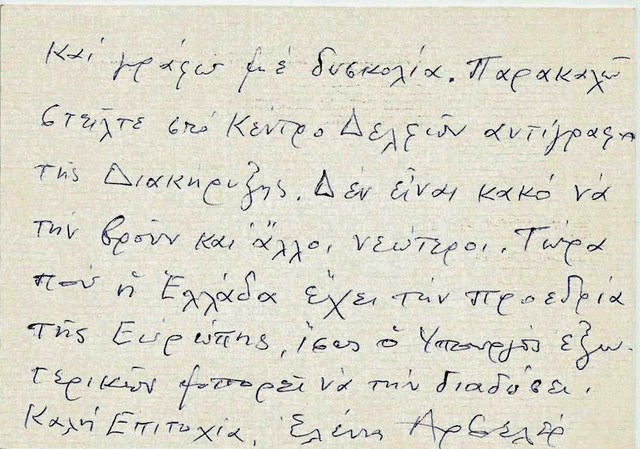 Καί γράφω μέ δυσκολία. Παρακαλῶ
στεῖλτε στό Κέντρο Δελφῶν αντίγραφο
τῆς Διακήρυξης. Δέν εἶναι κακό νά
τήν βροῦν και ἄλλοι νεώτεροι. Τώρα
πού ἡ Ἑλλάδα ἔχει τήν προεδρία
τῆς Εὐρώπης, ἴσως ὁ Υπουργός ἐξω-
τερικῶν μπορεῖ νά τήν διαδώσει.
Καλή Επιτυχία, Ἑλένη Αρβελέρ